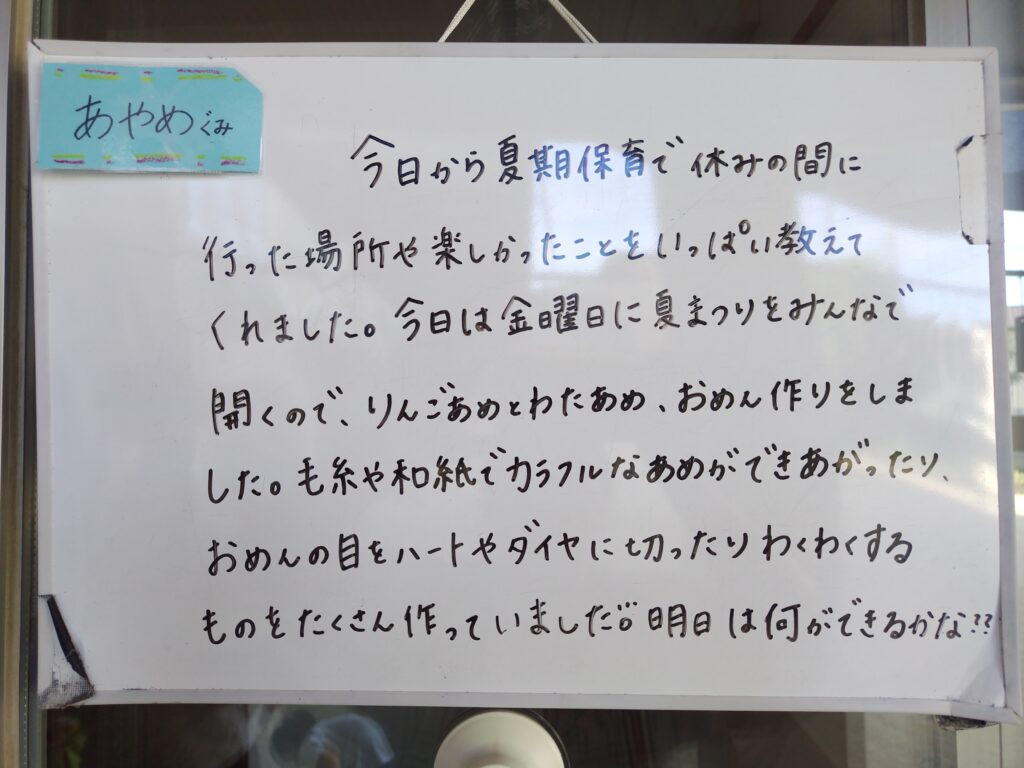 あやめぐみ
今日から夏期保育で休みの間に
行った場所や楽しかったことをいっぱい教えて
くれました。今日は金曜日に夏まつりをみんなで
開くので、りんごあめとわたあめ、おめん作りをしま
した。毛糸や和紙でカラフルなあめができあがったり、
おめんの目をハートやダイヤに切ったりわくわくする
ものをたくさん作っていました!!。明日は何ができるかな??